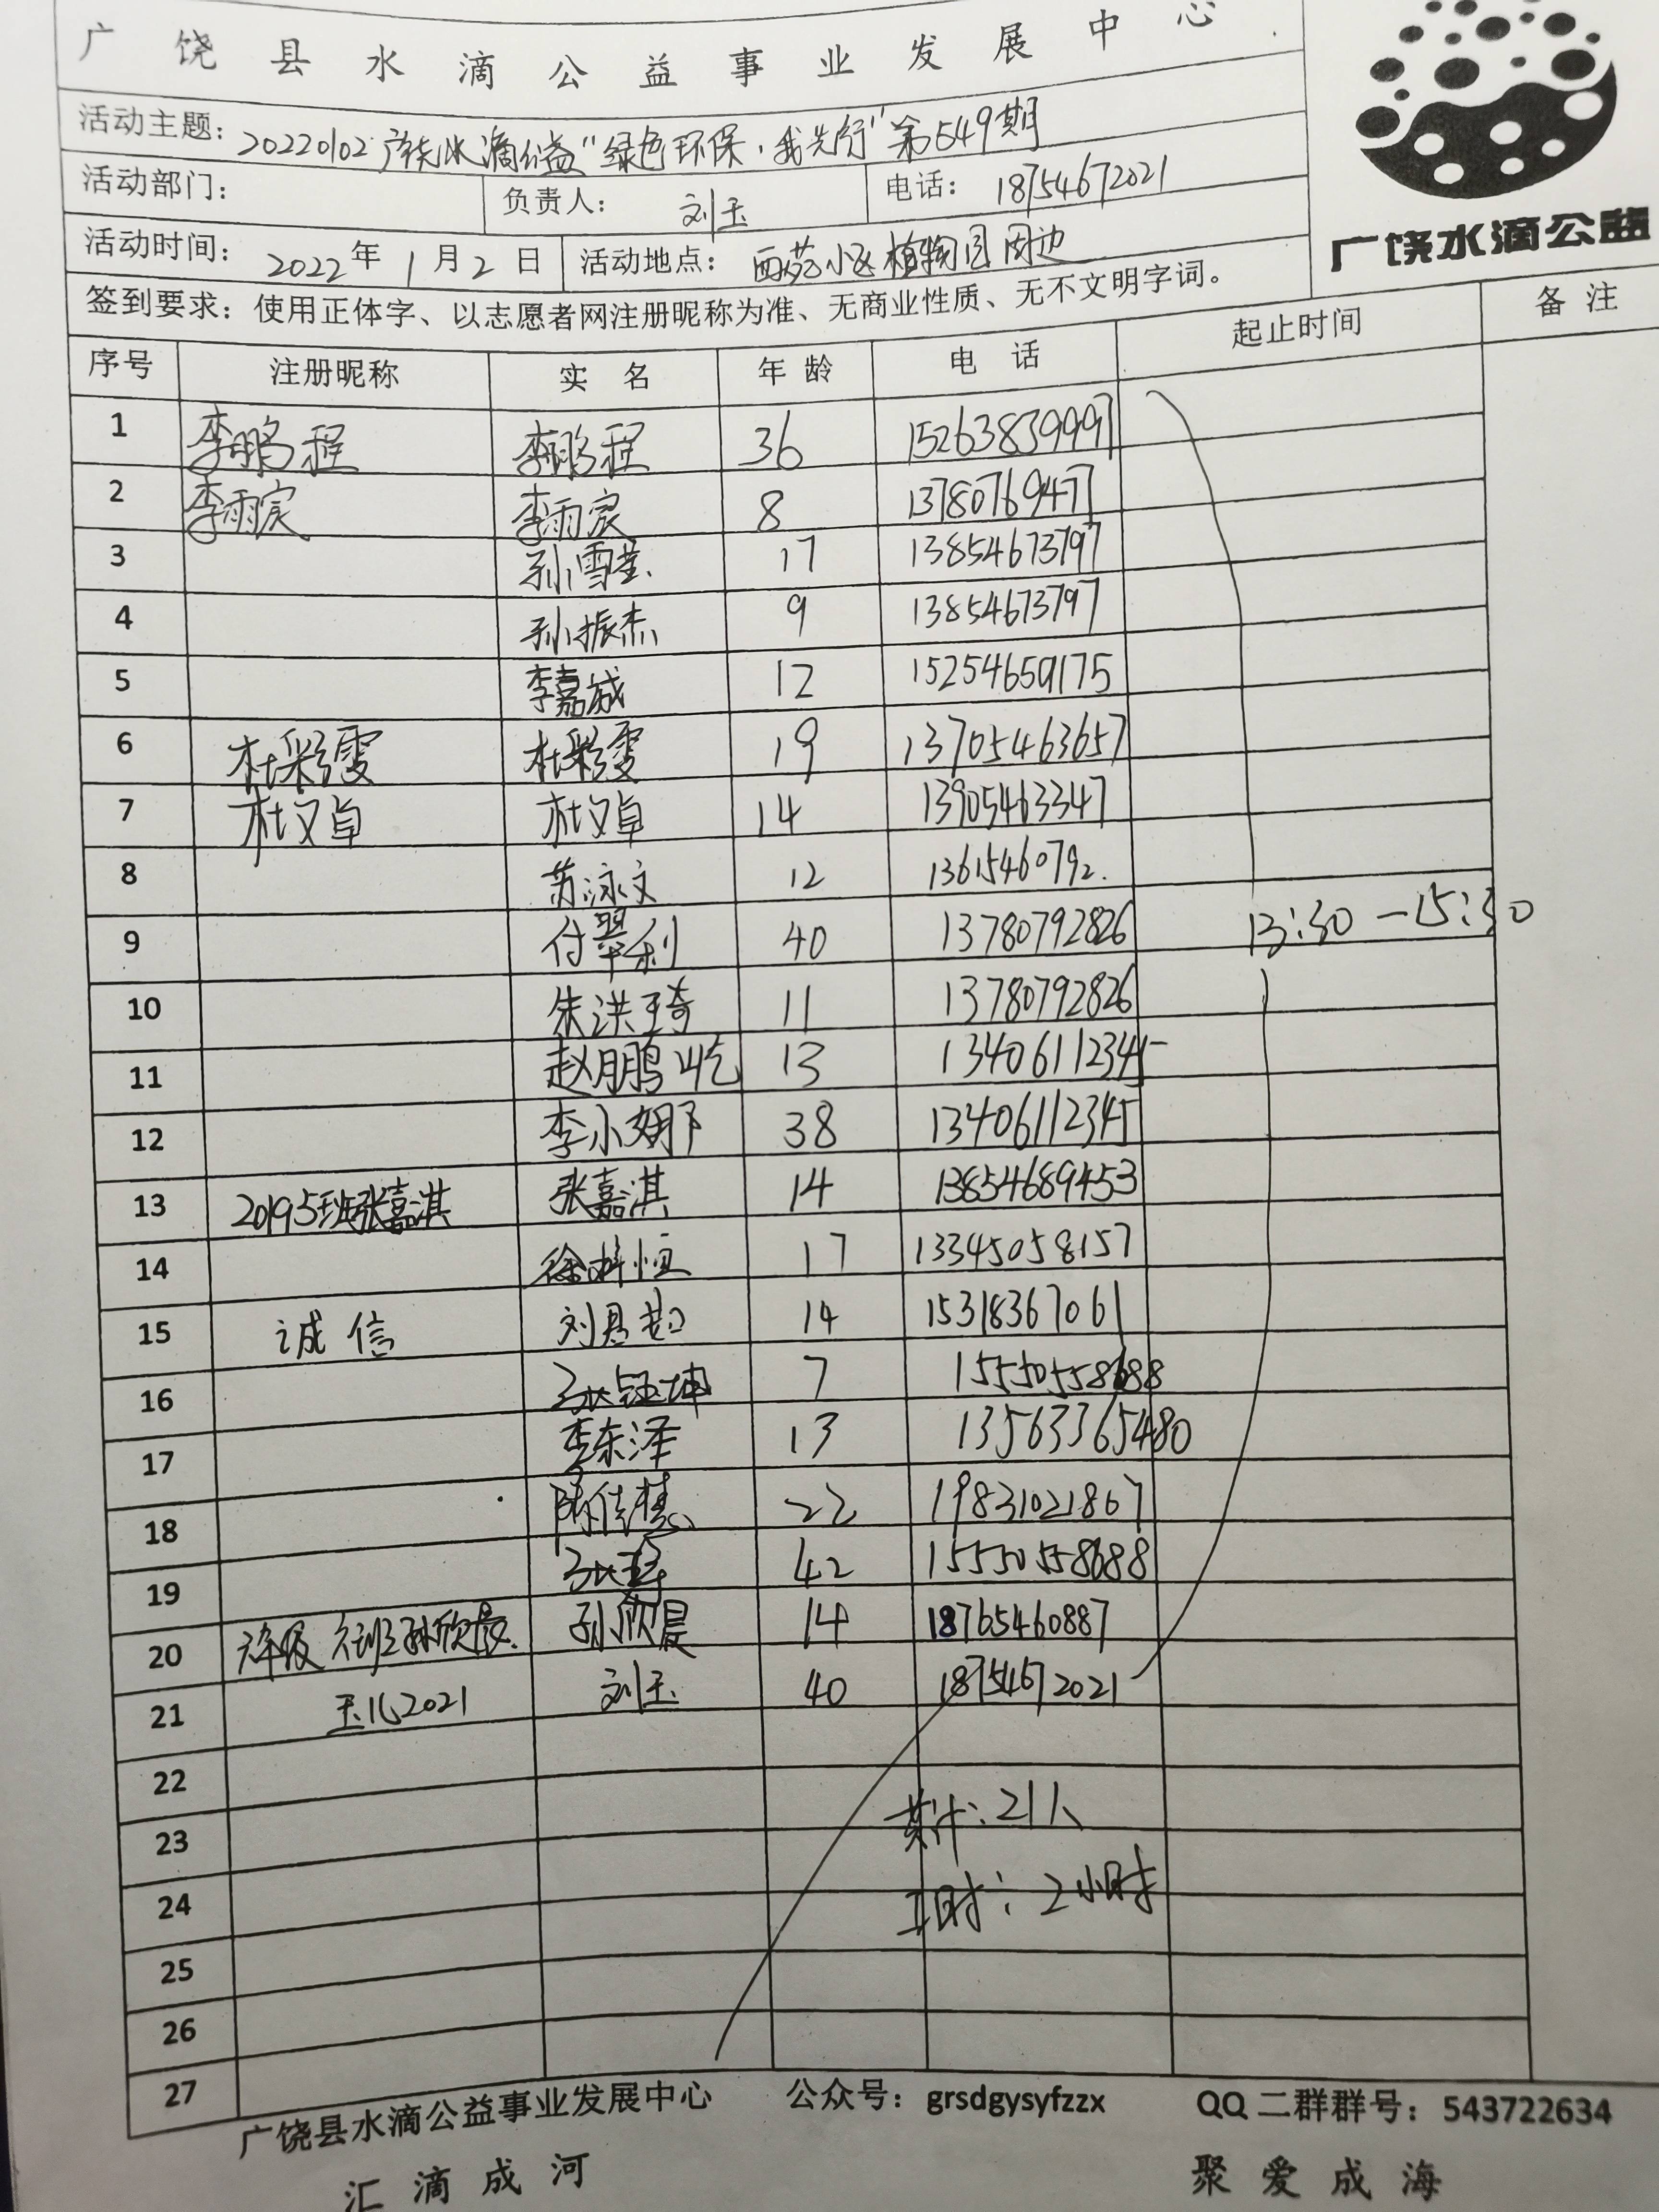 广饶县水滴公益事业发展中心
广饶水滴公益
活动主题：20220102广饶水滴公益“绿色环保，我先行”第549期
活动部门： 负责人：刘玉 电话：18754672021
活动时间：2022年1月2日 活动地点：西苑小区植物园周边
签到要求：使用正体字、以志愿者网注册昵称为准、无商业性质、无不文明字词。
序号 注册昵称 实名 年龄 电话 起止时间 备注
1 李鹏程 李鹏程 36 15263839997
2 李雨宸 李雨宸 8 13780769477
3 孙雪莹 17 13854673797
4 孙振杰 9 13854673797
5 李嘉诚 12 15254659175
6 杜彩雯 杜彩雯 19 13705463657
7 杜文卓 杜文卓 14 13905463347
8 苏泳文 12 13615460792
9 付翠利 40 13780792826 13:30-15:30
10 朱洪琦 11 13780792826
11 赵朋鹏屹 13 13406112345
12 李小娜 38 13406112345
13 20195班张嘉淇 张嘉淇 14 13854689453
14 徐梓恒 17 13345058157
15 诚信 刘 14 15318367061
16 张钰坤 7 15550558688
17 李东泽 13 13563365480
18 陈佳慧 22 19831021867
19 张 42 15550558688
20 孙欣晨 孙欣晨 14 18765460887
21 玉儿2021 刘玉 40 18754672021
22 共计：21人
23
24 工时：2小时
25
26
27
广饶县水滴公益事业发展中心 公众号：grsdgysyfzzx QQ二群群号：543722634
汇滴成河 聚爱成海